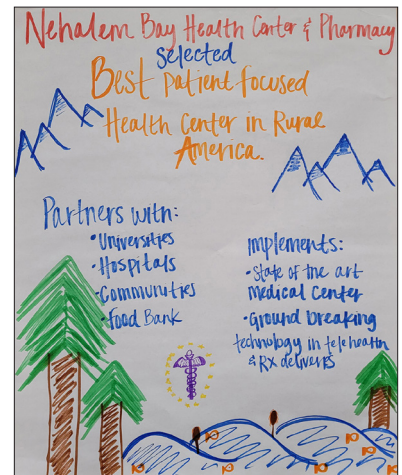 Nehalem Bay Health Center & Pharmacy
Selected
Best Patient focused
Health Center in Rural
America.
Partners with:
• Universities
• Hospitals
• Communities
• Food Bank
implements:
• State of the art
Medical Center
• Ground breaking
technology in telehealth
& Rx delivery